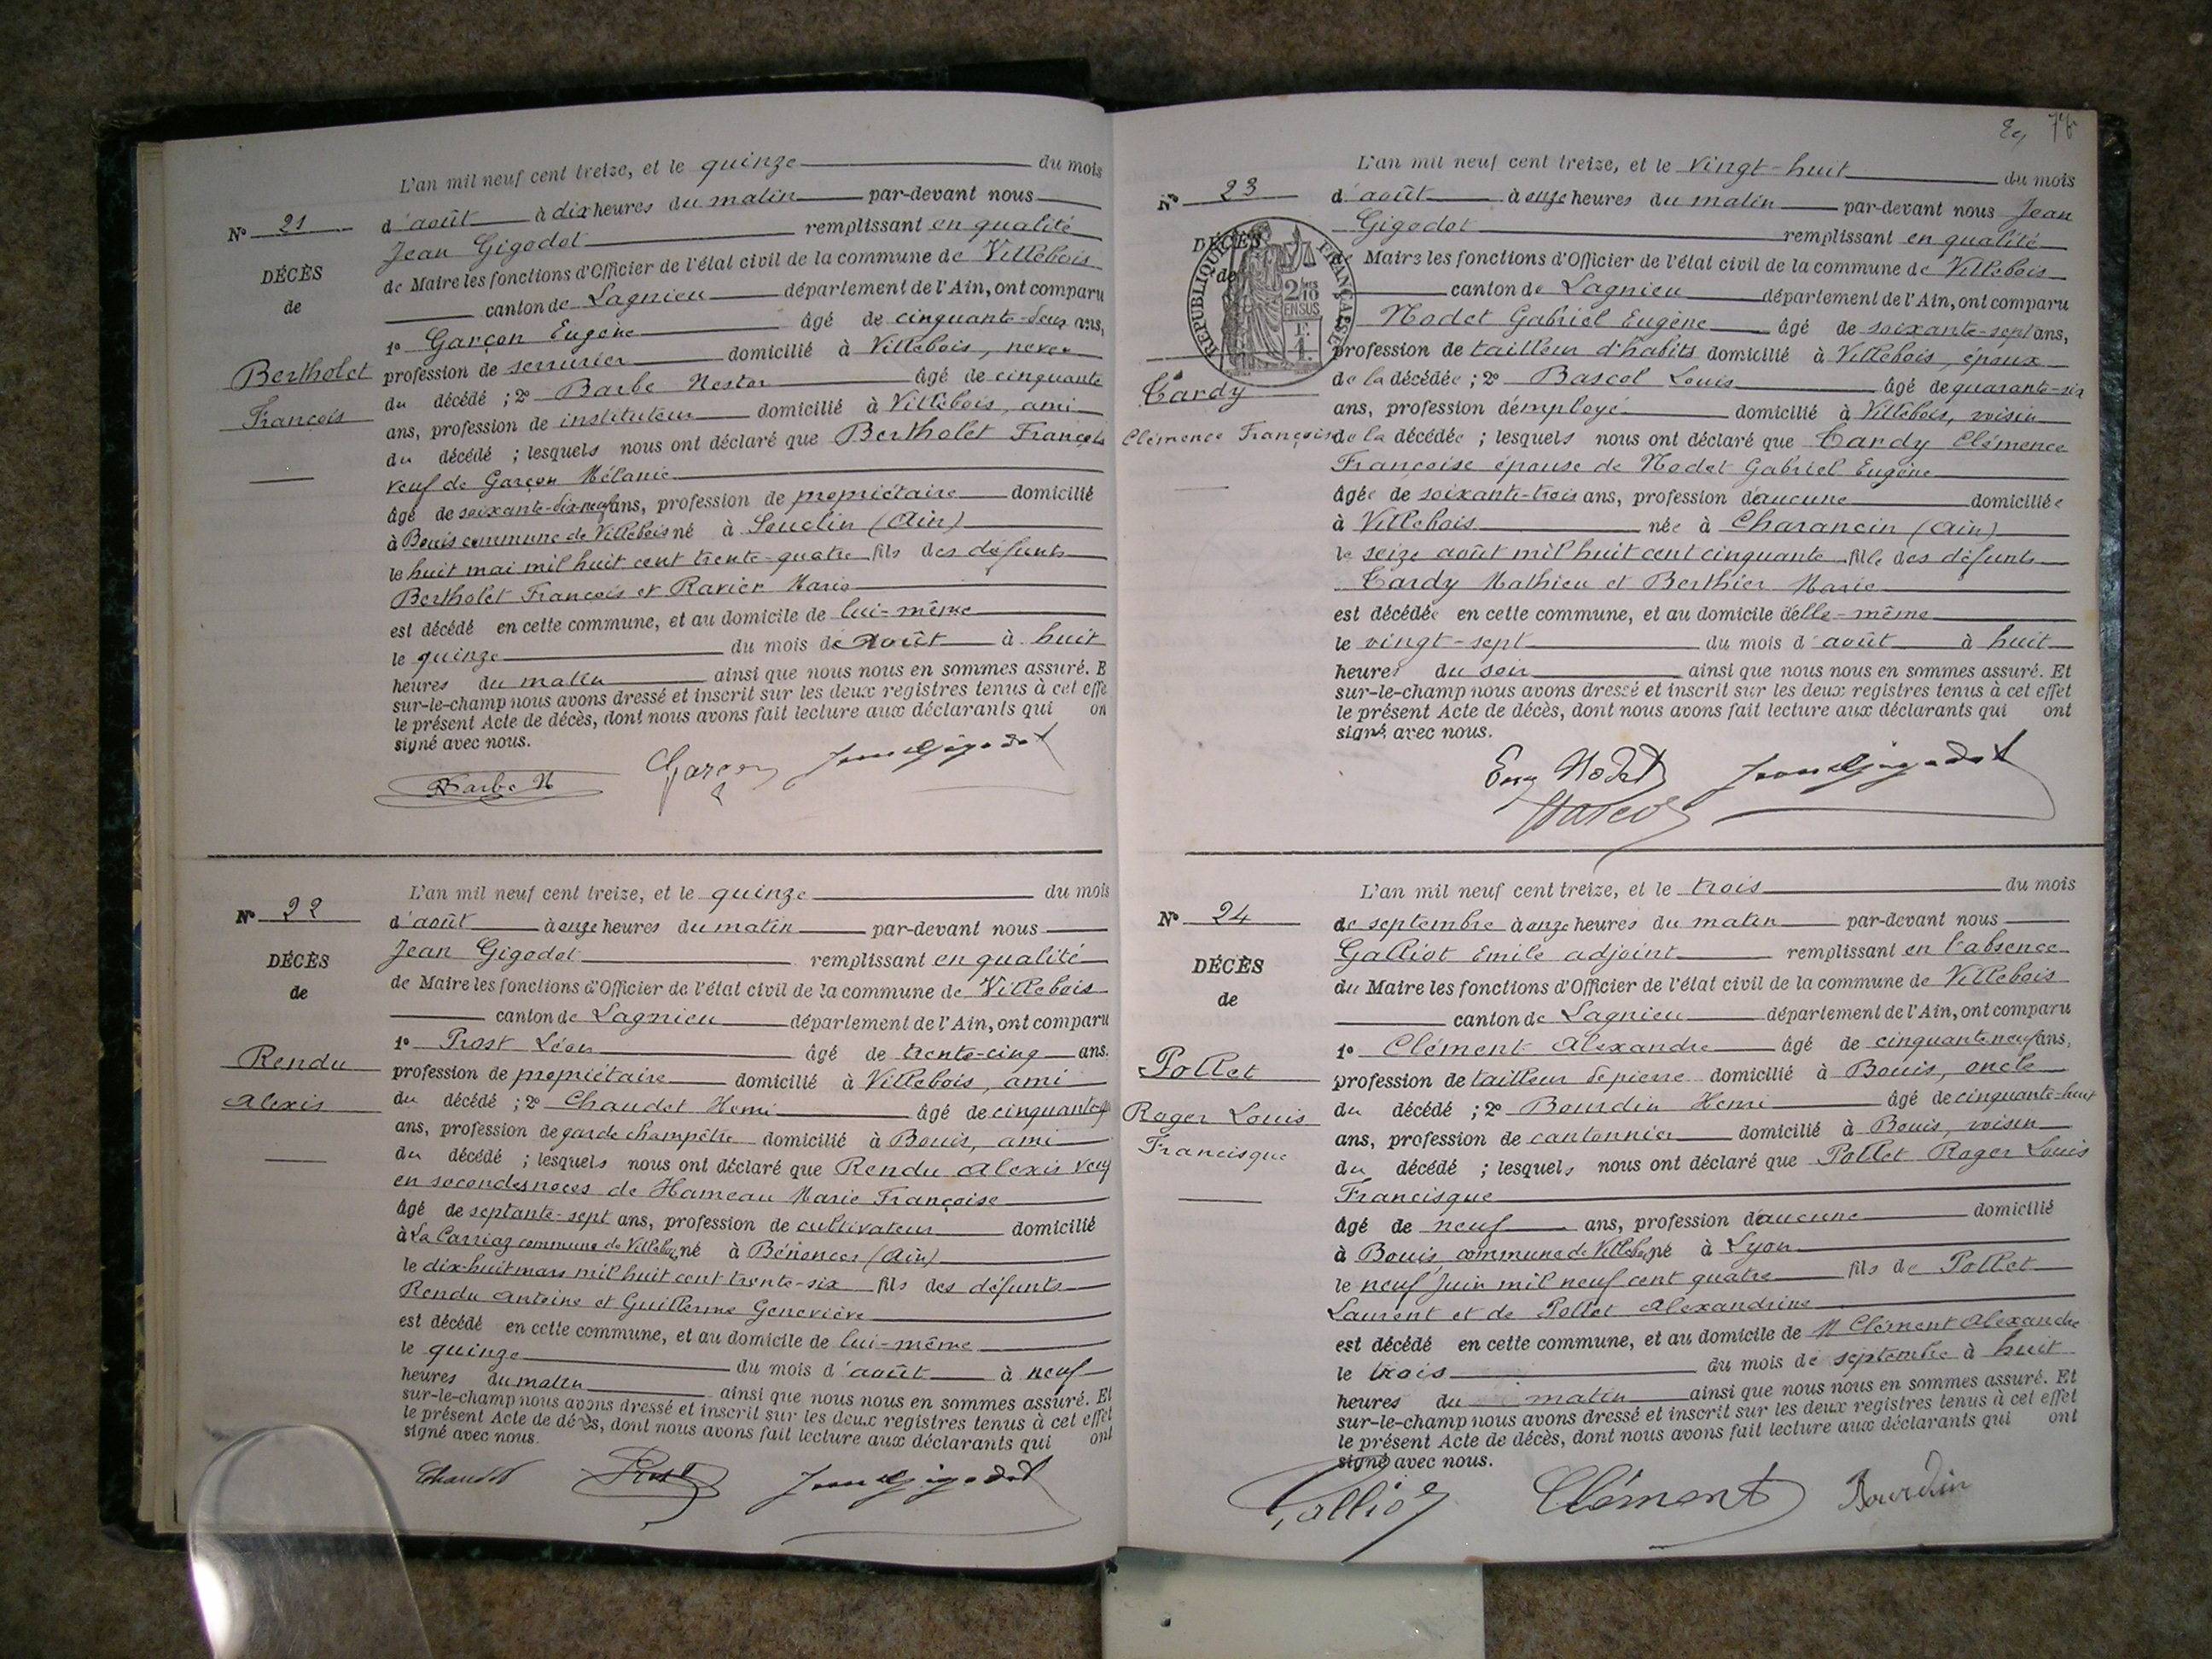 L'an mil neuf cent treize, et le quinze du mois
d'août à dix heures du matin par-devant nous
Jean Gigodot remplissant en qualité
de Maire les fonctions d'Officier de l'état civil de la commune de Villebois
canton de Lagnieu département de l'Ain, ont comparu
1º Garçon Eugène âgé de cinquante-deux ans,
profession de serrurier domicilié à Villebois, neveu
du décédé ; 2º Barbe Nestor âgé de cinquante
ans, profession de instituteur domicilié à Villebois, ami
du décédé ; lesquels nous ont déclaré que Bertholet François
veuf de Garçon Mélanie
âgé de soixante-dix-neuf ans, profession de propriétaire domicilié
à Bouis commune de Villebois né à Souclin (Ain)
le huit mai mil huit cent trente-quatre fils des défunts
Bertholet François et Ravier Marie
est décédé en cette commune, et au domicile de lui-même
le quinze du mois de août à huit
heures du matin ainsi que nous nous en sommes assuré. E
sur-le-champ nous avons dressé et inscrit sur les deux registres tenus à cet effe
le présent Acte de décès, dont nous avons fait lecture aux déclarants qui on
signé avec nous.
Barbe N Garçon Jean Gigodot
Nº 21
DÉCÈS
de
Bertholet
François
L'an mil neuf cent treize, et le quinze du mois
d'août à onze heures du matin par-devant nous
Jean Gigodot remplissant en qualité
de Maire les fonctions d'Officier de l'état civil de la commune de Villebois
canton de Lagnieu département de l'Ain, ont comparu
1º Prost Léon âgé de trente-cinq ans.
profession de propriétaire domicilié à Villebois, ami
du décédé ; 2º Chaudet Henri âgé de cinquante
ans, profession de garde champêtre domicilié à Bouis, ami
du décédé ; lesquels nous ont déclaré que Rendu Alexis veuf
en secondes noces de Hameau Marie Françoise
âgé de septante-sept ans, profession de cultivateur domicilié
à La Carriaz commune de Villebois né à Bénonces (Ain)
le dix-huit mars mil huit cent trente-six fils des défunts
Rendu Antoine et Guillerme Geneviève
est décédé en cette commune, et au domicile de lui-même
le quinze du mois d'août à neuf
heures du matin ainsi que nous nous en sommes assuré. Et
sur-le-champ nous avons dressé et inscrit sur les deux registres tenus à cet effet
le présent Acte de décès, dont nous avons fait lecture aux déclarants qui ont
signé avec nous.
Chaudet Prost Jean Gigodot
Nº 22
DÉCÈS
de
Rendu
Alexis
76
L'an mil neuf cent treize, et le vingt-huit du mois
d'août à onze heures du matin par-devant nous Jean
Gigodot remplissant en qualité
de Maire les fonctions d'Officier de l'état civil de la commune de Villebois
canton de Lagnieu département de l'Ain, ont comparu
Nodet Gabriel Eugène âgé de soixante-sept ans,
profession de tailleur d'habits domicilié à Villebois, époux
de la décédée ; 2º Bascol Louis âgé de quarante-six
ans, profession d'employé domicilié à Villebois, voisin
de la décédée ; lesquels nous ont déclaré que Tardy Clémence
Françoise épouse de Nodet Gabriel Eugène
âgée de soixante-trois ans, profession d'aucune domiciliée
à Villebois née à Charancin (Ain)
le seize août mil huit cent cinquante fille des défunts
Tardy Mathieu et Berthier Marie
est décédée en cette commune, et au domicile d'elle-même
le vingt-sept du mois d'août à huit
heures du soir ainsi que nous nous en sommes assuré. Et
sur-le-champ nous avons dressé et inscrit sur les deux registres tenus à cet effet
le présent Acte de décès, dont nous avons fait lecture aux déclarants qui ont
signé avec nous.
Eug Nodet Jean Gigodot
Bascol
Nº 23
DÉCÈS
de
RÉPUBLIQUE FRANÇAISE
2/10
EN SUS
Tardy
Clémence Françoise
L'an mil neuf cent treize, et le trois du mois
de septembre à onze heures du matin par-devant nous
Galliot Emile adjoint remplissant en l'absence
du Maire les fonctions d'Officier de l'état civil de la commune de Villebois
canton de Lagnieu département de l'Ain, ont comparu
1º Clément Alexandre âgé de cinquante neuf ans,
profession de tailleur de pierre domicilié à Bouis, oncle
du décédé ; 2º Bourdin Henri âgé de cinquante-huit
ans, profession de cantonnier domicilié à Bouis, voisin
du décédé ; lesquels nous ont déclaré que Pollet Roger Louis
Francisque
âgé de neuf ans, profession d'aucune domicilié
à Bouis, commune de Villebois né à Lyon
le neuf Juin mil neuf cent quatre fils de Pollet
Laurent et de Pollet Alexandrine
est décédé en cette commune, et au domicile de M Clément Alexandre
le trois du mois de septembre à huit
heures du matin ainsi que nous nous en sommes assuré. Et
sur-le-champ nous avons dressé et inscrit sur les deux registres tenus à cet effet
le présent Acte de décès, dont nous avons fait lecture aux déclarants qui ont
signé avec nous.
Galliot Clément Bourdin
Nº 24
DÉCÈS
de
Pollet
Roger Louis
Francisque